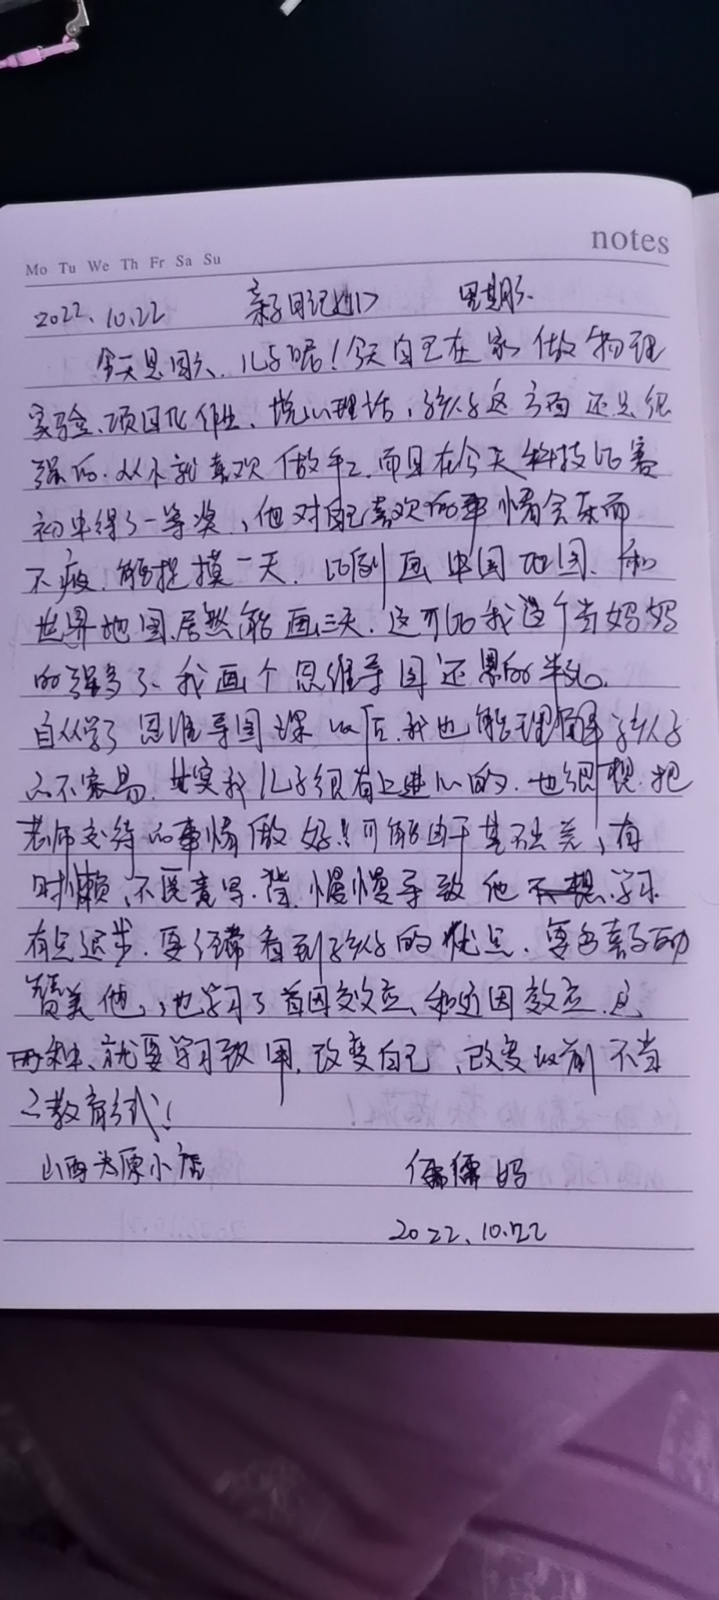 notes
Mo Tu We Th Fr Sa Su
2022.10.22 亲子日记 星期六
今天是周六、儿子呢！今天自己在家做物理
实验、项目化作业、说心理话，孩子这方面还是很
强的.从小就喜欢做手工.而且在今天科技比赛
初中得了一等奖，他对自己喜欢的事情会乐而
不疲.能捉摸一天.比例画中国地图.和
世界地图.居然能画三天.这可比我这个当妈妈
的强多了、我画个思维导图还累的半死.
自从学了思维导图课以后.我也能理解孩子
的不容易.其实我儿子很有上进心的.也很想把
老师交待的事情做好！可能由于基础差，有
时懒、不愿意写.背.慢慢导致他学习
有点退步.要经常看到孩子的优点.要多亲子互动
赞美他，也学习了首因效应、和近因效应.这
两种、就要学习致用.改变自己、改变以前不当
的教育方式！
山西太原小店 儒儒妈
2022.10.22